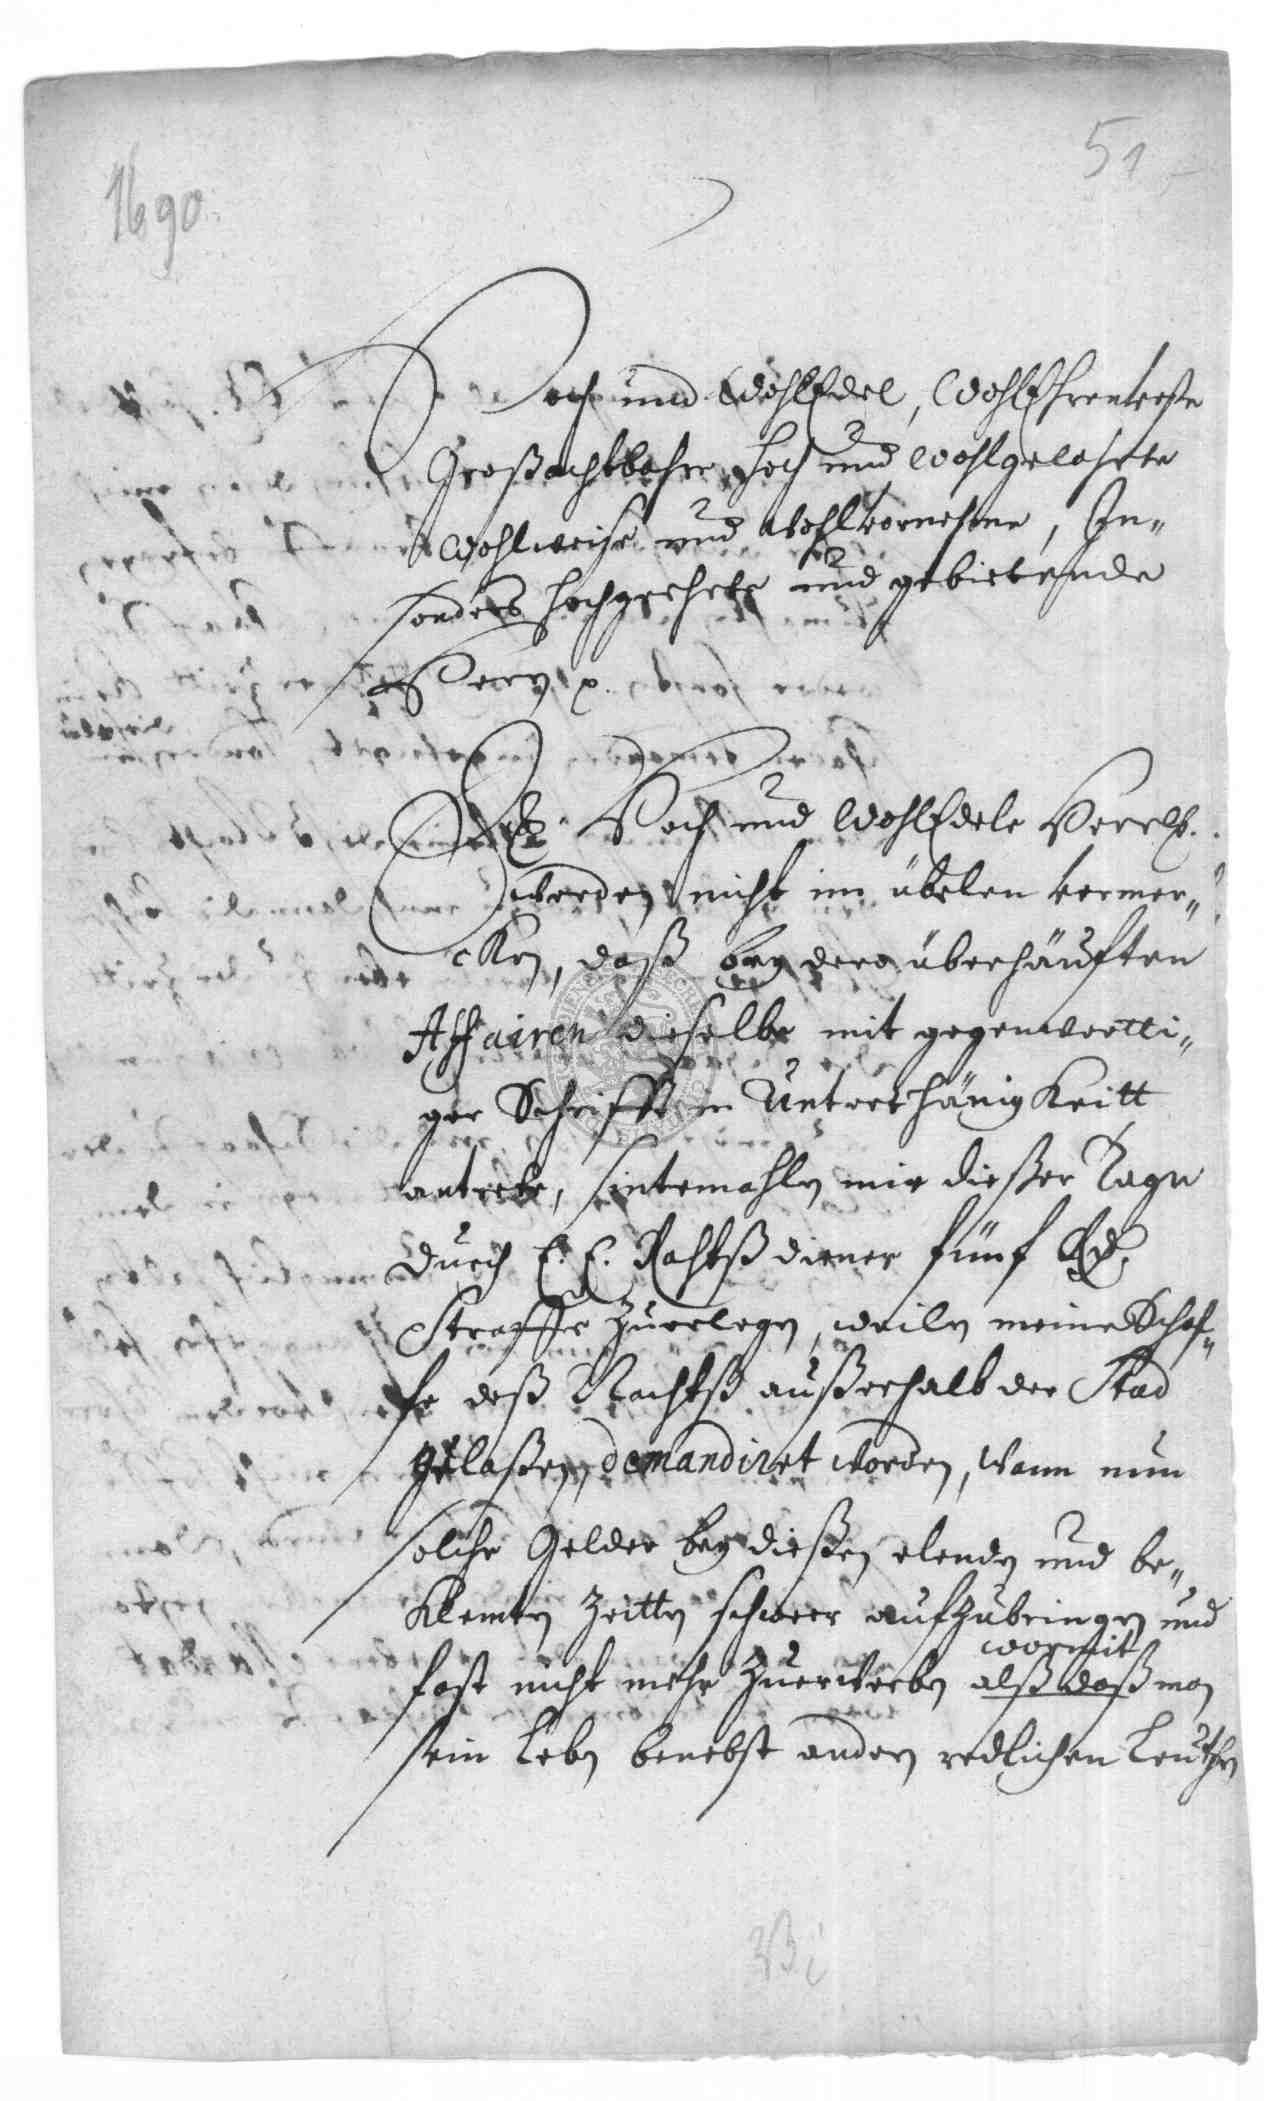 51
1690.
Hoch und WohlEdel, WohlEhrenveste
Großachtbahre, Hoch und Wohlgelahrte
Wohlweise und Wohlvornehme, In„
sonders Hochgeehrte und gebietende
Herrn p.
Ew. Hoch und WohlEdele Herrl.
werden nicht im übelen vermer„
cken, daß bey dero überhäufften
Affairen dieselbe mit gegenwertti„
ger Schrifft in Unterthänigkeitt
antrete, sintemahln mir dießer Tage
durch E. E. Rahtßdiener fünf
Straffe Zuerlegen, weiln meine Schaf„
fe deß Nachtß außerhalb der Stad
gelaßen, demandiret worden, Wann nun
solche Gelder bey dießen elenden und be„
klemten Zeitten schwer aufzubringen und
wormit
fast nicht mehr Zuerwerben alß daß man
sein Leben benebst andern redlichen Leuthen